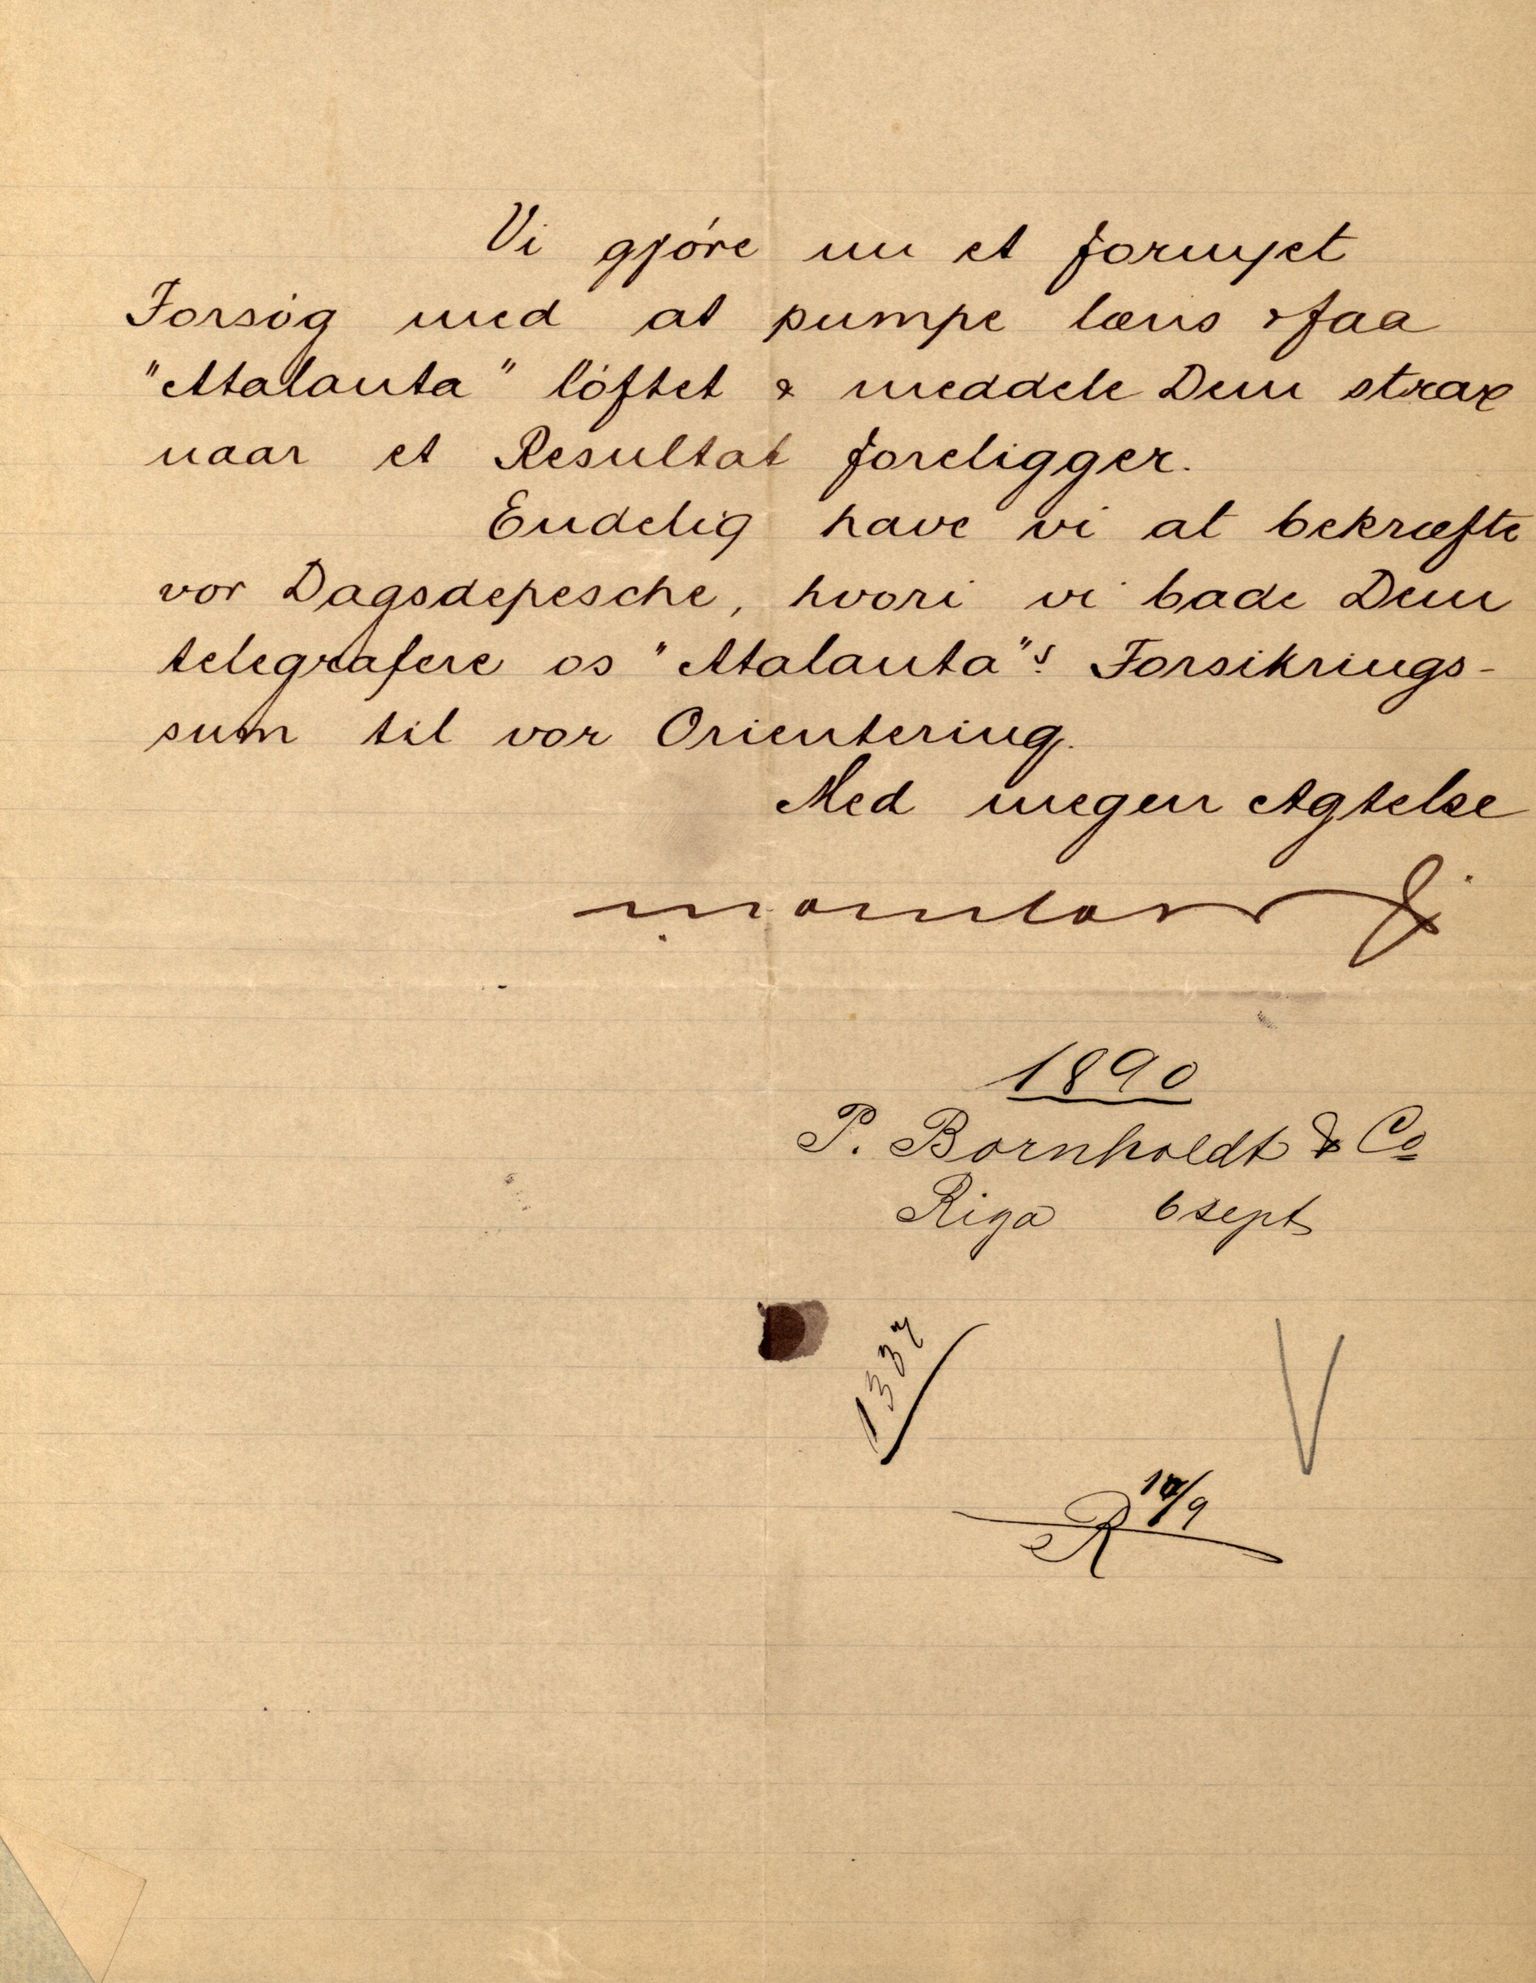 Vi gjóre nu et fornyet
Forsóg med at pumpe læns & faa
"Atalanta" lóftet & meddele Dem strax
naar et Resultat foreligger.
Endelig have vi at bekræfte
vor Dagsdepesche, hvori vi bade Dem
telegrafere os "Atalanta"s Forsikrings-
sum til vor Orientering.
Med megen Agtelse
1890
P. Bornholdt & Co
Riga 6 sept
R